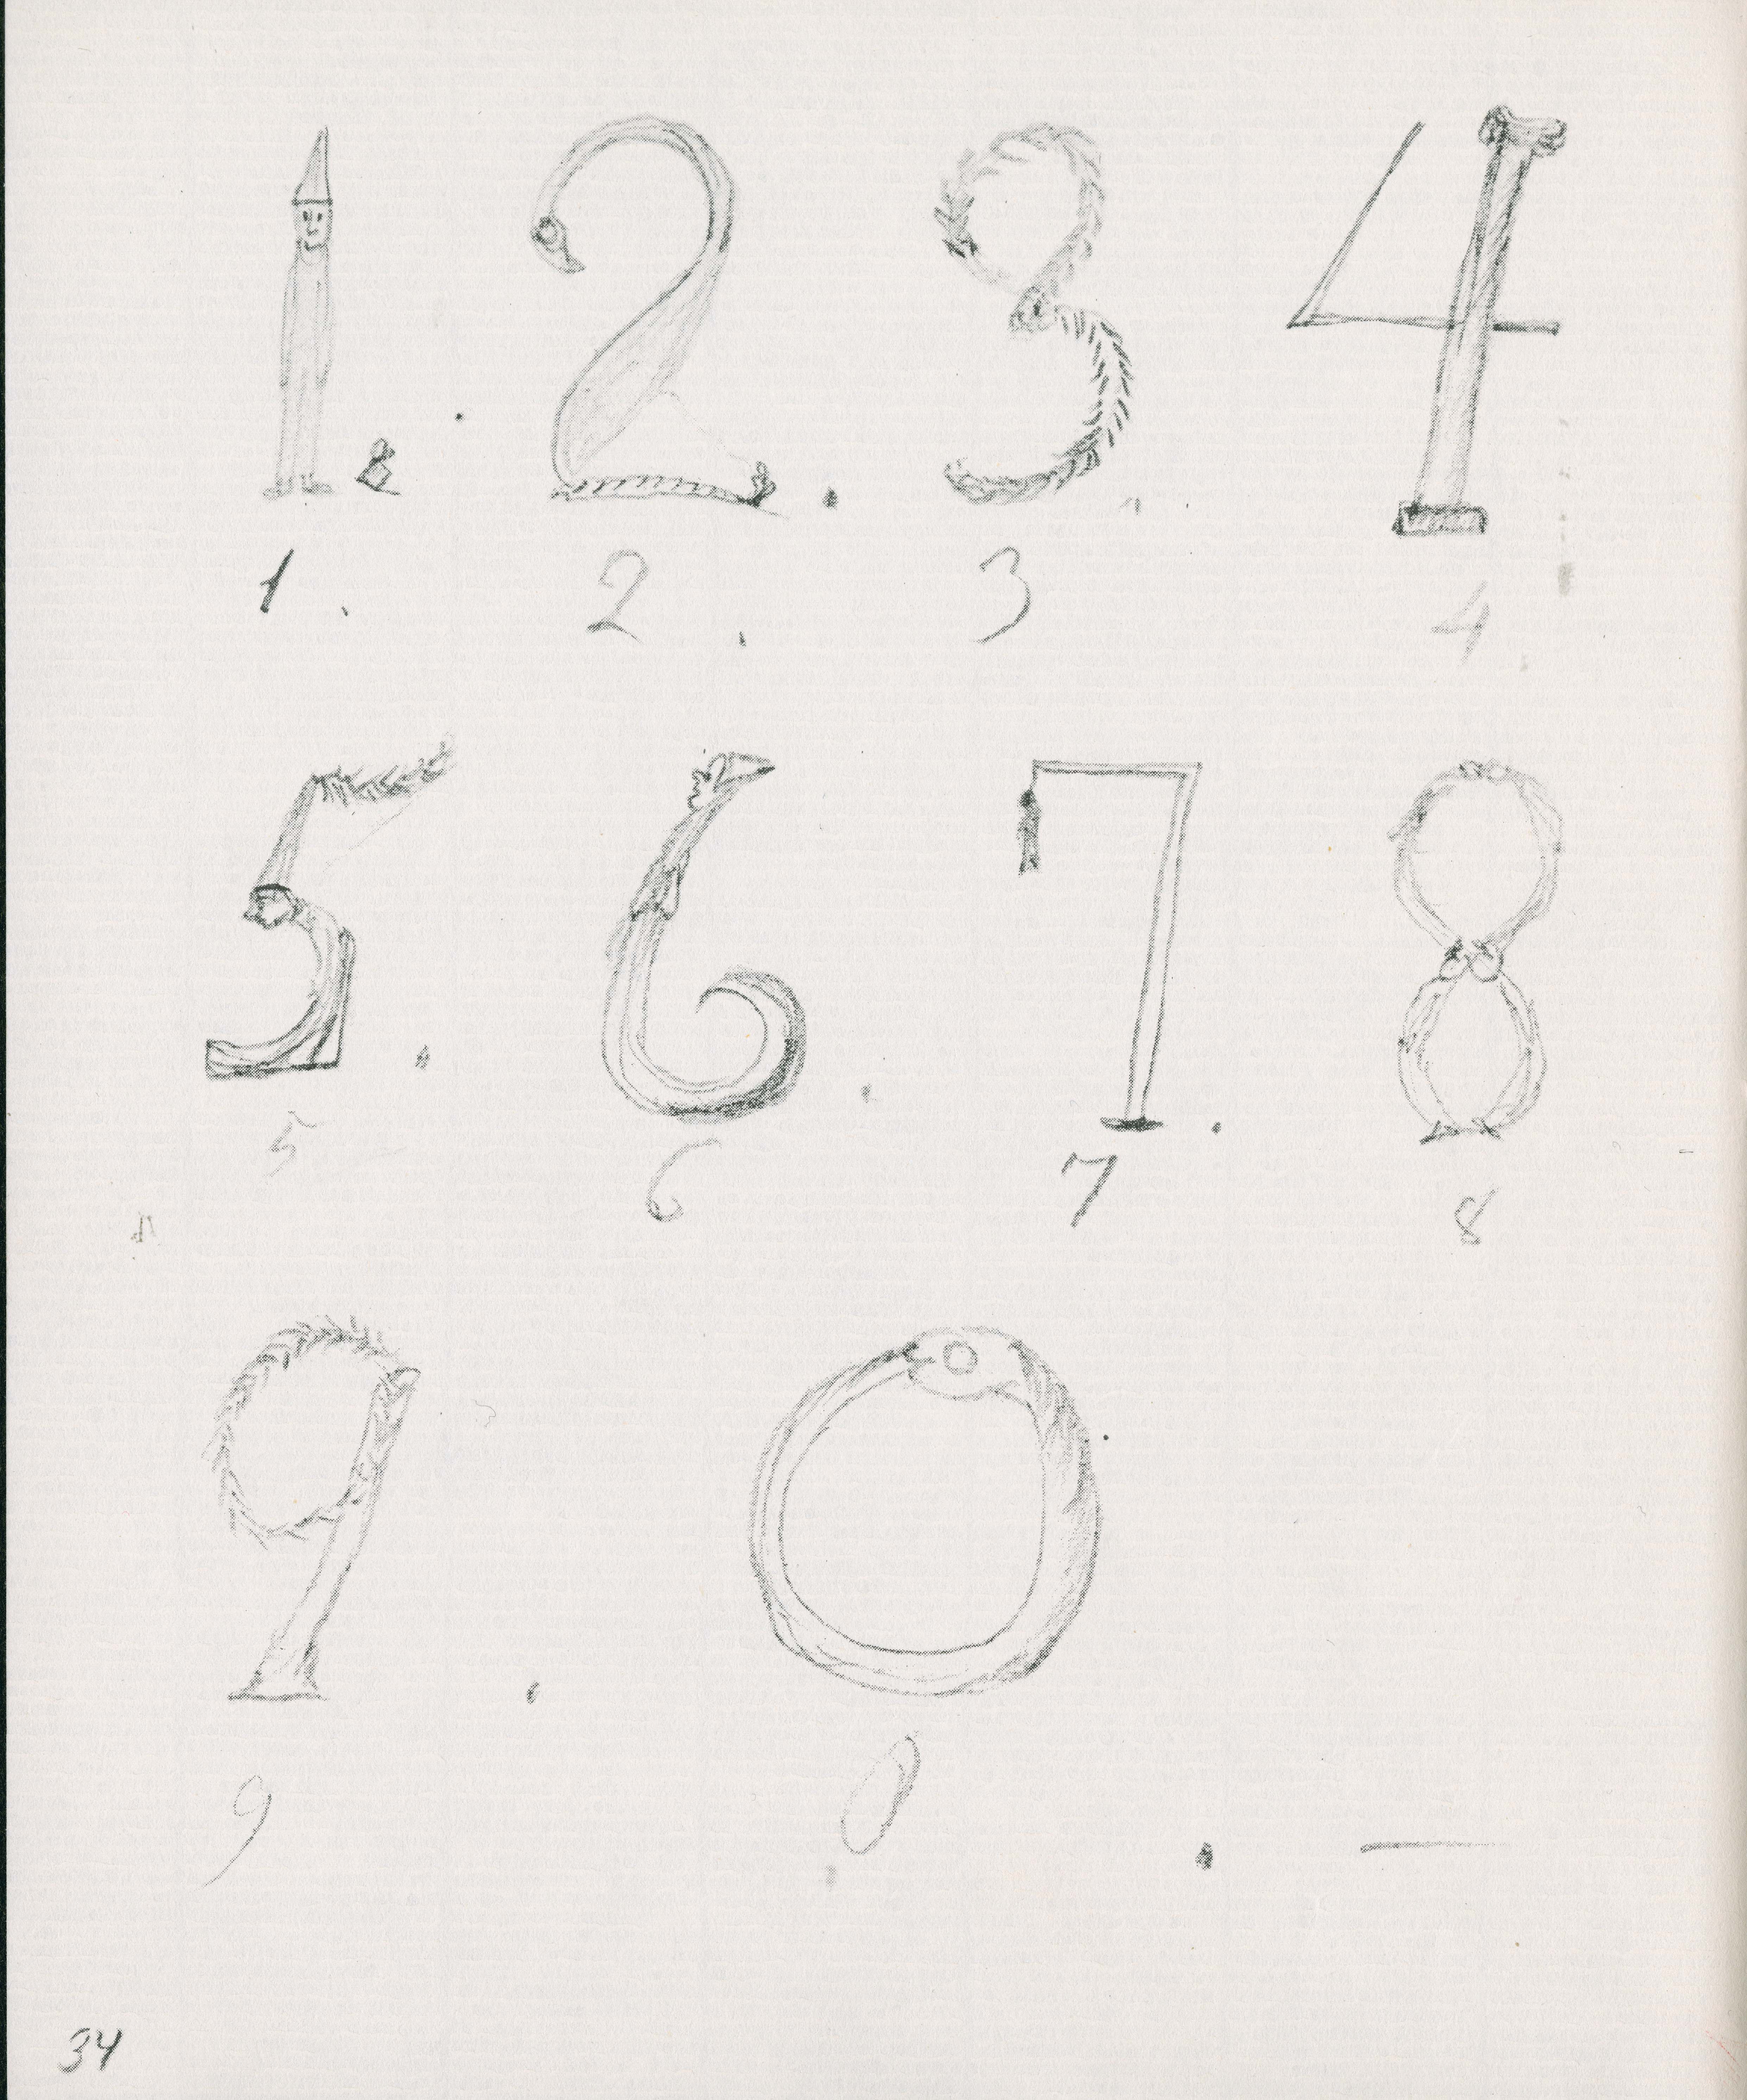 1. 2. 3 4
1. 2. 3 4
5. 6. 7. 8
5 6 7 8
9. 0
9 0. —
34